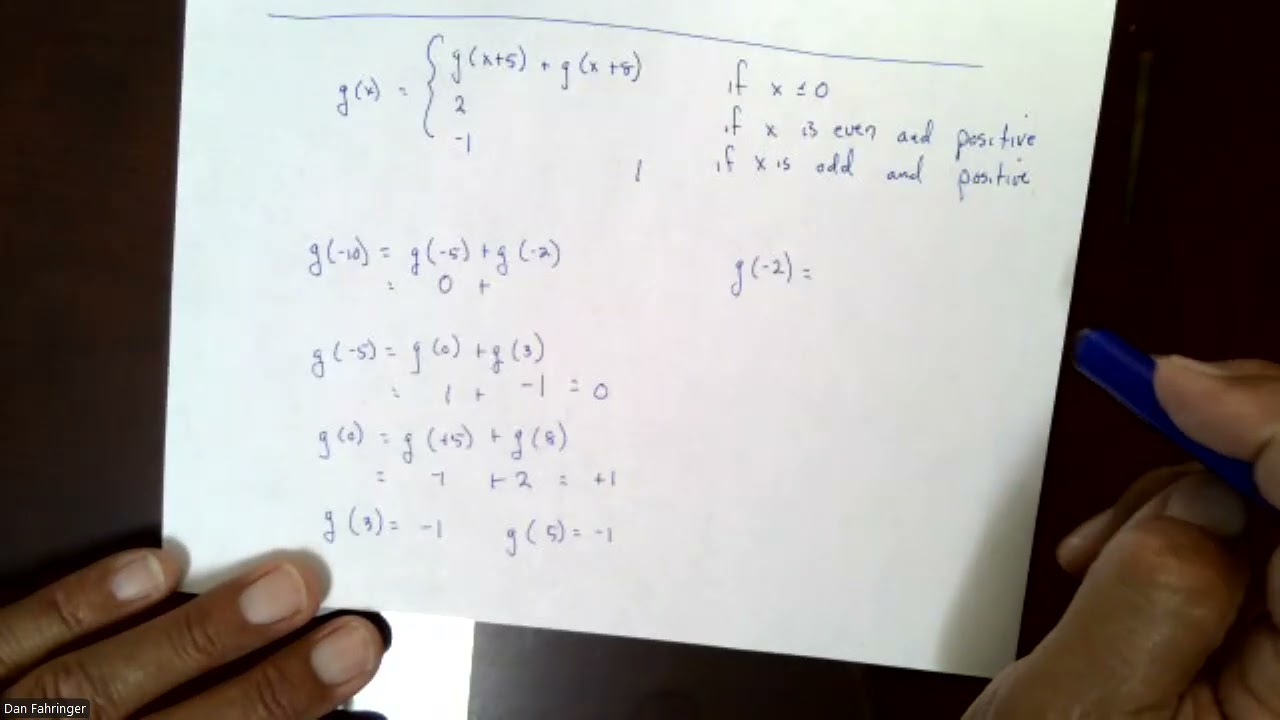 g(x) = { g(x+5) + g(x+8) if x ≤ 0
2 if x is even and positive
-1 if x is odd and positive
g(-10) = g(-5) + g(-2)
= 0 +
g(-2) =
g(-5) = g(0) + g(3)
= 1 + -1 = 0
g(0) = g(+5) + g(8)
= -1 + 2 = +1
g(3) = -1 g(5) = -1
Dan Fahringer